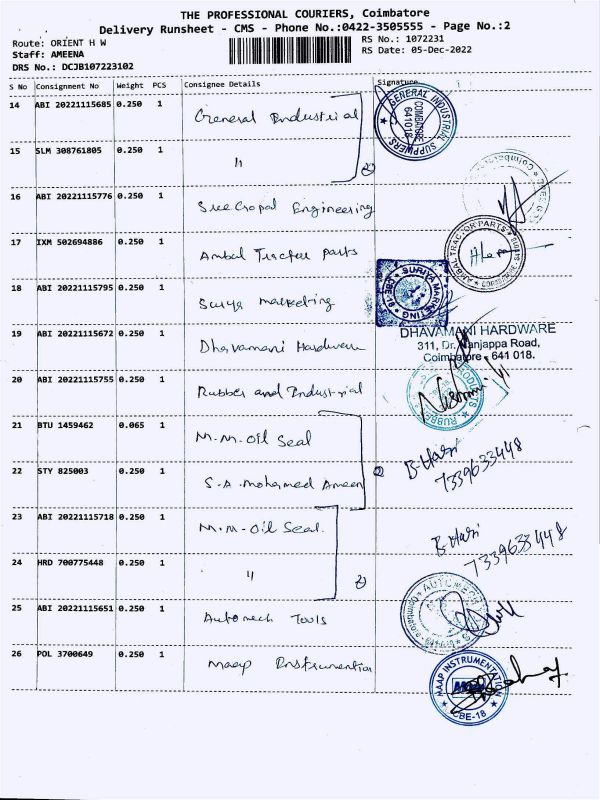 THE PROFESSIONAL COURIERS, Coimbatore
Delivery Runsheet - CMS - Phone No.:0422-3505555 - Page No.:2
Route: ORIENT H W
RS No.: 1072231
Staff: AMEENA
RS Date: 05-Dec-2022
DRS No.: DCJB107223102
S No Consignment No Weight PCS Consignee Details Signature
14 ABI 20221115685 0.250 1 General Industrial
GENERAL INDUSTRIAL SUPPLIERS COIMBATORE 641018
15 SLM 308761805 0.250 1 "
2
16 ABI 20221115776 0.250 1 Sree Gopal Engineering
17 IXM 502694886 0.250 1 Ambal Tractor parts
AMBAL TRACTOR PARTS
18 ABI 20221115795 0.250 1 Surya marketing
SURYA MARKETING
19 ABI 20221115672 0.250 1 Dhavamani Hardware
DHAVAMANI HARDWARE
311, Dr. Nanjappa Road,
Coimbatore - 641 018.
20 ABI 20221115755 0.250 1 Rubber and Industrial
21 BTU 1459462 0.065 1 M.M-Oil Seal
B-Hari
7339633448
22 STY 825003 0.250 1 S.A. Mohamed Ameen
2
23 ABI 20221115718 0.250 1 M.M-Oil Seal.
B-Hari
7339633448
24 HRD 700775448 0.250 1 "
2
25 ABI 20221115651 0.250 1 Automech Tools
26 POL 3700649 0.250 1 Maap Instrumentation
MAAP INSTRUMENTATION
CBE-18